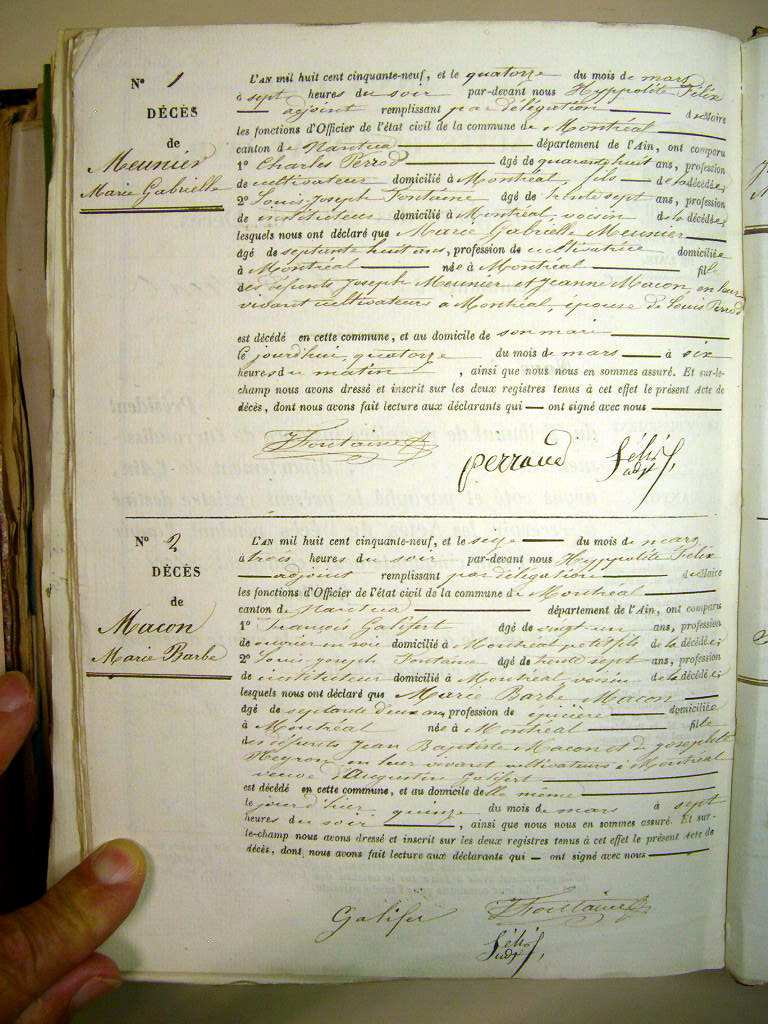 N° 1
DÉCÈS
de
Meunier
Marie Gabrielle
L'AN mil huit cent cinquante-neuf, et le quatorze du mois de mars
à sept heures du soir par-devant nous Hyppolite Félix
adjoint remplissant par délégation de Maire
les fonctions d'Officier de l'état civil de la commune de Montréal
canton de Nantua département de l'Ain, ont comparu
1° Charles Perrod âgé de quarante huit ans, profession
de cultivateur domicilié à Montréal fils de la décédée;
2° Louis Joseph Fontaine âgé de trente sept ans, profession
de instituteur domicilié à Montréal, voisin de la décédée;
lesquels nous ont déclaré que Marie Gabrielle Meunier
âgé de septante huit ans, profession de cultivatrice domiciliée
à Montréal née à Montréal fille
des défunts Joseph Meunier et Jeanne Macon, en leur
vivant cultivateurs à Montréal, épouse de Louis Perrod
est décédé en cette commune, et au domicile de son mari
le jourd'hui quatorze du mois de mars à six
heures du matin, ainsi que nous nous en sommes assuré. Et sur-le-
champ nous avons dressé et inscrit sur les deux registres tenus à cet effet le présent Acte de
décès, dont nous avons fait lecture aux déclarants qui — ont signé avec nous
Fontaine
perraud
Félix
adjt
N° 2
DÉCÈS
de
Macon
Marie Barbe
L'AN mil huit cent cinquante-neuf, et le seize du mois de mars
à trois heures du soir par-devant nous Hyppolite Félix
adjoint remplissant par délégation de Maire
les fonctions d'Officier de l'état civil de la commune de Montréal
canton de Nantua département de l'Ain, ont comparu
1° François Galifert âgé de vingt un ans, profession
de ouvrier en soie domicilié à Montréal petit fils de la décédée;
2° Louis Joseph Fontaine âgé de trente sept ans, profession
de instituteur domicilié à Montréal, voisin de la décédée;
lesquels nous ont déclaré que Marie Barbe Macon
âgé de septante deux ans, profession de épicière domiciliée
à Montréal née à Montréal fille
des défunts Jean Baptiste Macon et de Josephte
Neyron en leur vivant cultivateurs à Montréal
veuve d'Augustin Galifert
est décédé en cette commune, et au domicile de lle même
le jour d'hier quinze du mois de mars à sept
heures du soir, ainsi que nous nous en sommes assuré. Et sur-
le-champ nous avons dressé et inscrit sur les deux registres tenus à cet effet le présent Acte de
décès, dont nous avons fait lecture aux déclarants qui — ont signé avec nous
Galifer
Fontaine
Félix
adjt